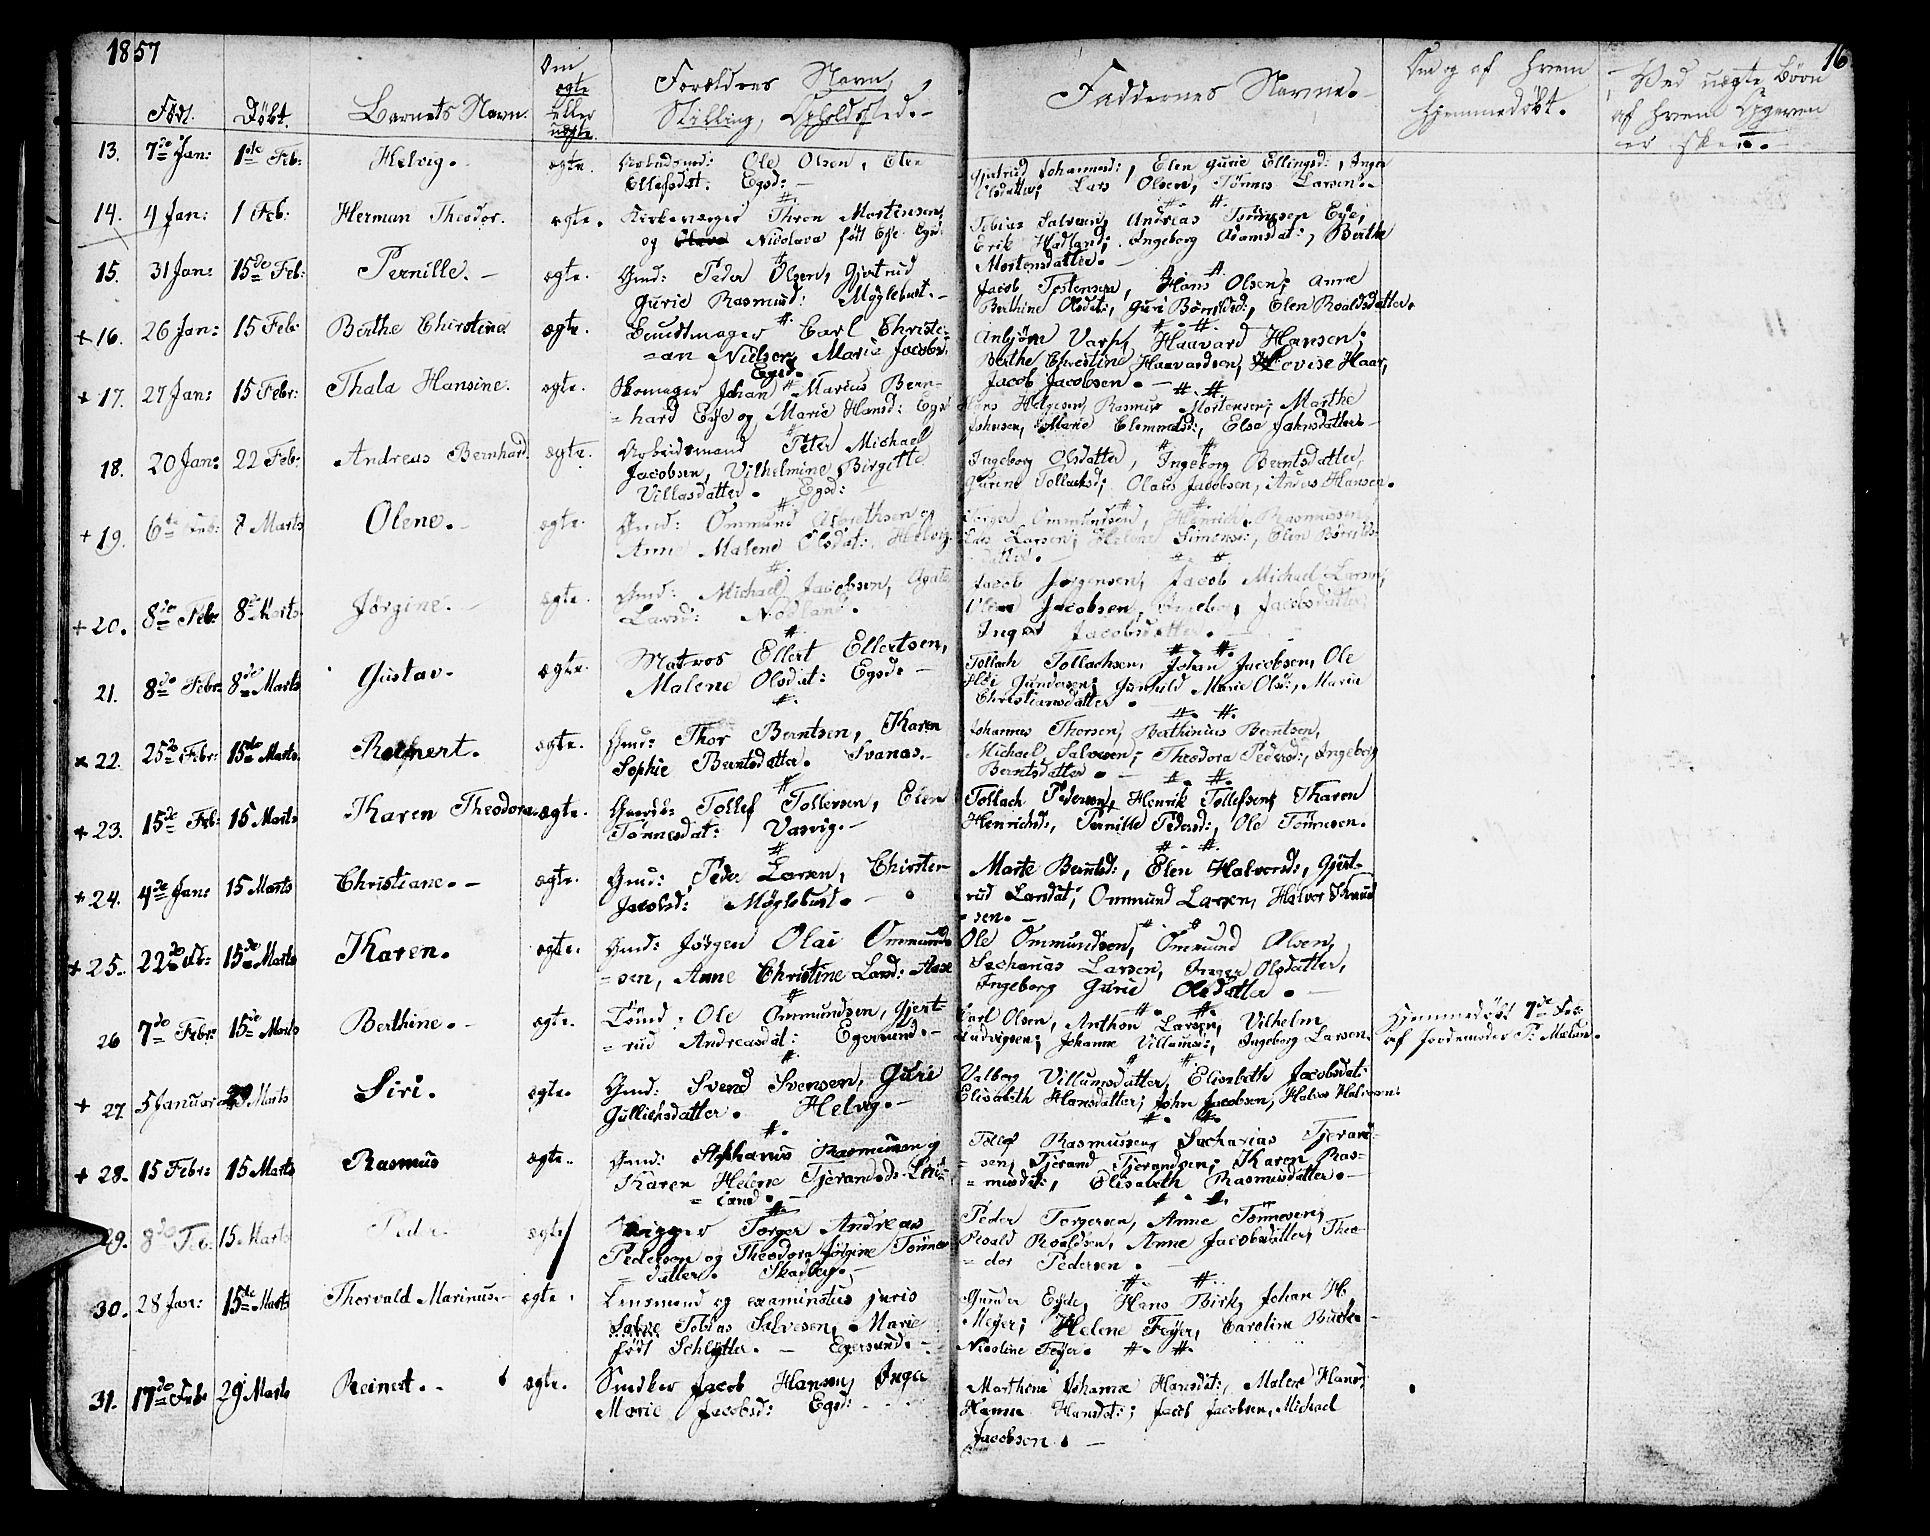 1857
16
Født.
Døbt.
Barnets Navn.
Om ægte eller uægte.
Forældres Navn, Stilling, Opholdsted.
Faddernes Navne.
Om og af hvem hjemmedøbt.
Ved uægte Børn af hvem Opgaven er skeet.
13. 7de Jan: 1ste Feb: Helvig. ægte. Ole Olsen, Elen
Ellefsdat: Egsd:
Gjertrud Johannesd:, Elen Gurie Ellingsd:, Inger
Olsdatter; Lars Olsen, Tønnes Larsen.
14. 4 Jan: 1 Feb: Herman Theodor. ægte. Kirkeværger Thron Mortensen,
og Nicolava født Eye Egsd:
Tobias Salvesen, Andreas Tønnesen Eye,
Erik Hadland; Ingeborg Adamsdat:, Berthe
Mortensdatter.
15. 31 Jan: 15de Feb: Pernille. ægte. Gmd: Peder Olsen, Gjertrud
Gurie Rasmusd: Møglebust.
Jacob Tostensen, Hans Olsen; Anne
Berthine Olsdat:, Guri Børrildsd:, Elen Roaldsdatter.
+16. 26 Jan: 15 Feb: Birthe Chirstine ægte. Bundtmager Carl Christi-
=an Nielsen, Marie Jacobs:
Egsd.
Anbjørn Varhf, Haavard Hansen;
Berthe Christine Haavardsen, Lovise Haar,
Jacob Jacobsen.
+ 17. 27 Jan: 15 Febr: Thala Hansine. ægte. Skomager Johan Marius Bern-
=hard Eye og Marie Hansd: Egsd
Hans Helgesen, Rasmus Mortensen; Marthe
Johnsen, Marie Clemmetsd:, Else Jahnsdatter
18. 20 Jan: 22 Feb: Andreas Bernhard. ægte. Arbeidsmand Peter Michael
Jacobsen, Vilhelmine Birgitte
Villasdatter. Egsd:
Ingeborg Olsdatter, Ingeborg Berntsdatter,
Gurine Tollachsd; Olaus Jacobsen, Andeas Hansen.
+ 19. 6te Feb: 8 Marts Olene. ægte. Gmd: Ommund Asbjørnsen og
Anne Malene Olsdat: Helvig.
Torger Ommundsen, Henrich Rasmussen,
Lars Larsen; Helene Simonsd:, Elen Børrilds-
datter.
+20. 8de Feb: 8de Marts Jørgine. ægte. Gmd: Michael Jacobsen, Agate
Larsd: Nodland.
Jacob Jørgensen, Jacob Michael Larsen,
Jacobsen, Ingeborg Jacobsdatter,
Inger Jacobsdatter.
21. 8de Febr: 8de Marts Gustav. ægte. Matros Ellert Ellertsen,
Malene Olsdat: Egsd:
Tollach Tollachsen, Johan Jacobsen, Ole
Gundersen; Gunuld Marie Olsd:, Marie
Christiansdatter.
x 22. 25de Febr: 15de Marts. Reinert. ægte. Gmd: Thor Berntsen, Karen
Sophie Berntsdatter. Svanas.
Johannes Thorsen, Berthinius Berntsen,
Michael Salvesen; Theodora Pedersd:, Ingeborg
Berntsdatter.
+ 23. 15de Feb: 15 Marts Karen Theodora. ægte. Tollef Tollefsen, Elen
Tønnesdat: Varvig.
Tollach Pedersen, Henrik Tollefsen; Tharen
Henrichsd:, Pernille Pedersd:, Ole Tønnesen.
+ 24. 4de Jan: 15 Marts Christiane. ægte. Gmd: Peder Larsen, Chirsten
Jacobsd: Møglebust.
Marte Berntsd:, Elen Halvorsd:, Gjert-
rud Larsdat; Ommund Larsen, Halvor Knud
sen.
+ 25. 22de Feb: 15de Marts Karen. ægte. Gmd: Jørgen Olai Ommund-
=sen, Anne Christine Larsd: Aase
Ole Ommundsen, Ommund Olsen,
Sacharias Larsen, Inger Olsdatter,
Ingeborg Gurie Olsdatter.
26 7de Febr: 15de Marts Berthine. ægte. Tømd: Ole Ommundsen, Gjert-
=rud Andreasdat: Egersund.
Carl Olsen, Anthon Larsen, Vilhelm
Ludvigsen; Johanne Villumsd:, Ingeborg Larsen.
Hjemmedøbt 7de Feb:
af Jordemoder P: Mælan.
+ 27. 5 Januar 29 Marts Siri. ægte. Gmd: Svend Svensen, Guri
Gullichsdatter. Helvig.
Valborg Villumsdatter, Elisabeth Jacobsdat:
Elisabeth Hansdatter; John Jacobsen, Halvor Halvorsen.
+ 28. 15 Febr: 15 Marts Rasmus ægte. Gmd: Stephanus Rasmussen og
Karen Helene Tjerandsd:
=land.
Tollef Rasmussen, Sacharias Tjerand-
=sen, Tjerand Tjerandsen; Karen Ras-
=musdat:, Elisabeth Rasmusdatter.
29. 8de Feb: 15. Marts Peder ægte Torger Andreas
Pedersen og Theodora Jørgine Tønnes-
=datter. Skadberg.
Peder Torgersen, Anne Tønnesen;
Roald Roaldsen, Anne Jacobsdatter, Theo-
=dor Pedersen.
30. 28 Jan: 15de Marts Thorvald Marinus. ægte. Lensmand og examinatus juris
Salve Tobias Salvesen, Marie
født Schlytter. Egersund.
Gunder Eyde, Hans Birk, Johan H.
Meyer; Helene Feyer, Caroline
Nicoline Feyer.
31. 17de Feb: 29 Marts Reinert. ægte. Snedker Jacob Hansen, Inger
Marie Jacobsd: Egsd:
Marthine Johanne Hansdat:, Malene Hansd:
Hanne Hansdat:; Jacob Jacobsen, Michael
Jacobsen.